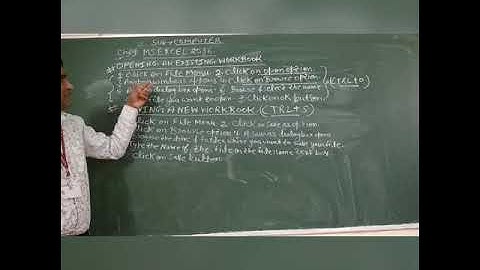 SUB:- COMPUTER
MS EXCEL 2016
OPENING AN EXISTING WORKBOOK
1 Click on File Menu 2. Click on open option
Click on Browse option (CTRL+O)
dialog box opens Browse the name
file you want to open Click on ok button
A NEW WORKBOOK (CTRL+S)
Click on File Menu 2. Click on Save as option
Click on Browse option 4. Save as dialog box opens
the folder where you want to save your file.
Type the Name of the file in the file name text box
Click on Save button